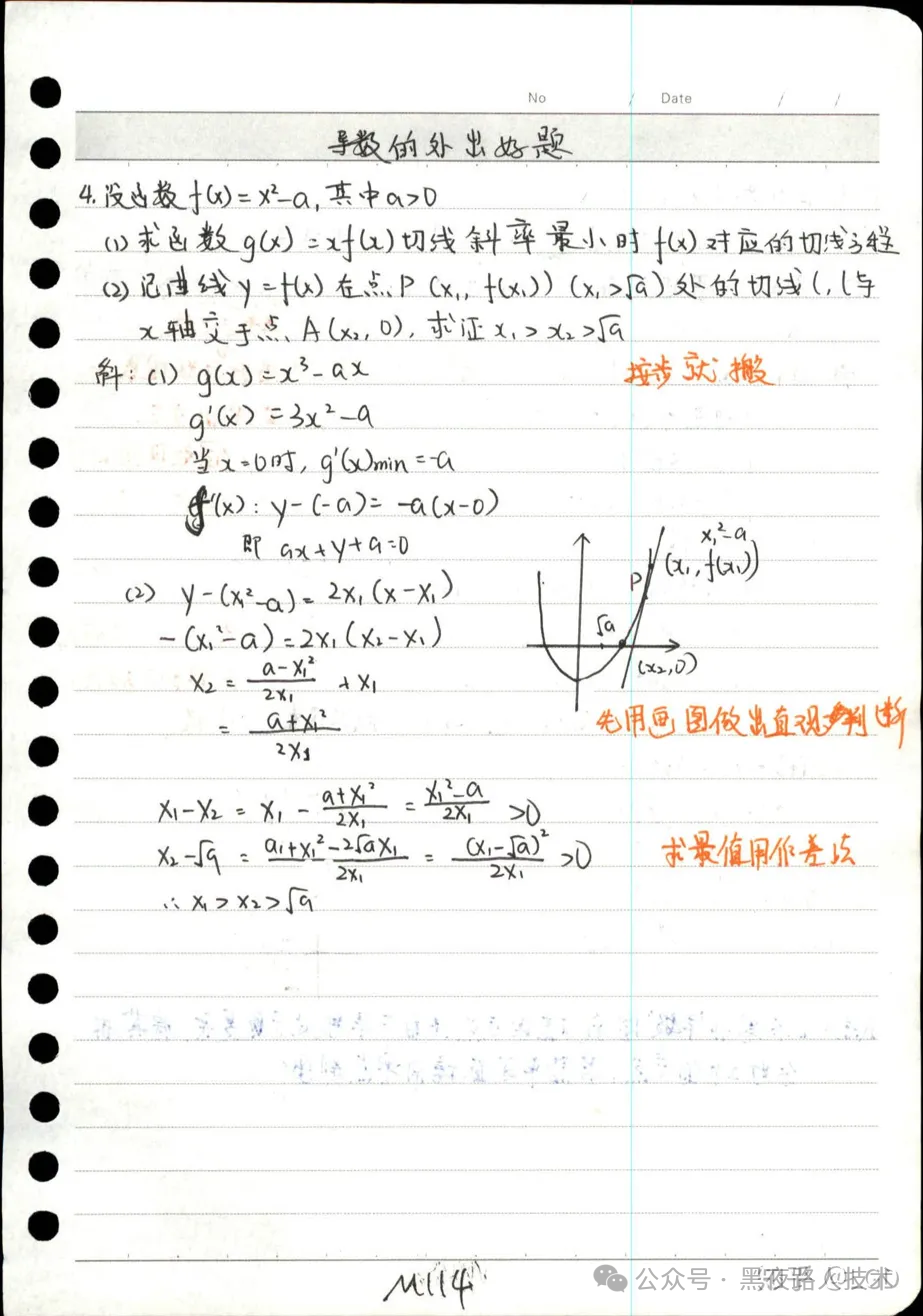 No / Date / /
导数的外出好题
4.设函数f(x)=x²-a,其中a>0
(1)求函数g(x)=xf(x)切线斜率最小时f(x)对应的切线方程
(2)记曲线y=f(x)在点P(x₁,f(x₁))(x₁>√a)处的切线l,l与
x轴交于点A(x₂,0),求证x₁>x₂>√a
解:(1) g(x)=x³-ax
按步就搬
g'(x)=3x²-a
当x=0时,g'(x)min=-a
f'(x):y-(-a)=-a(x-0)
即 ax+y+a=0
x₁²-a
(x₁,f(x₁))
P
√a
(x₂,0)
(2) y-(x₁²-a)=2x₁(x-x₁)
-(x₁²-a)=2x₁(x₂-x₁)
x₂=\frac{a-x₁²}{2x₁}+x₁
=\frac{a+x₁²}{2x₁}
先用画图做出直观判断
x₁-x₂=x₁-\frac{a+x₁²}{2x₁}=\frac{x₁²-a}{2x₁}>0
x₂-√a=\frac{a₁+x₁²-2√ax₁}{2x₁}=\frac{(x₁-√a)²}{2x₁}>0
求最值用作差法
∴x₁>x₂>√a
M114
公众号·黑夜路人技术